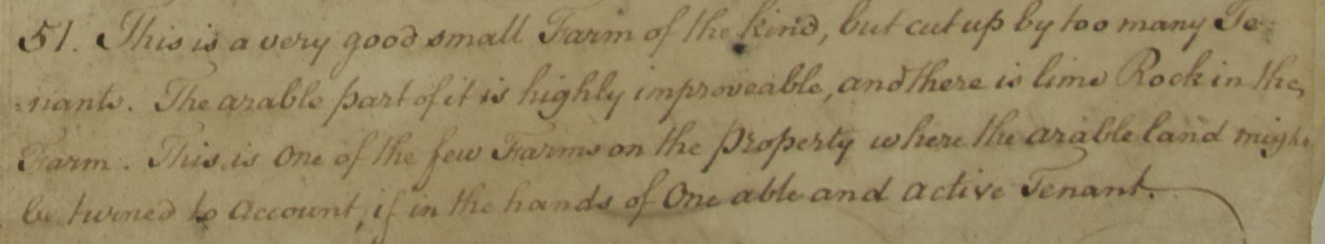 51. This is a very good small Farm of the kind, but cut up by too many Te-
-nants. The arable part of it is highly improveable, and there is lime Rock in the
Farm. This is One of the few Farms on the property where the arable land might
be turned to Account, if in the hands of One able and active Tenant.